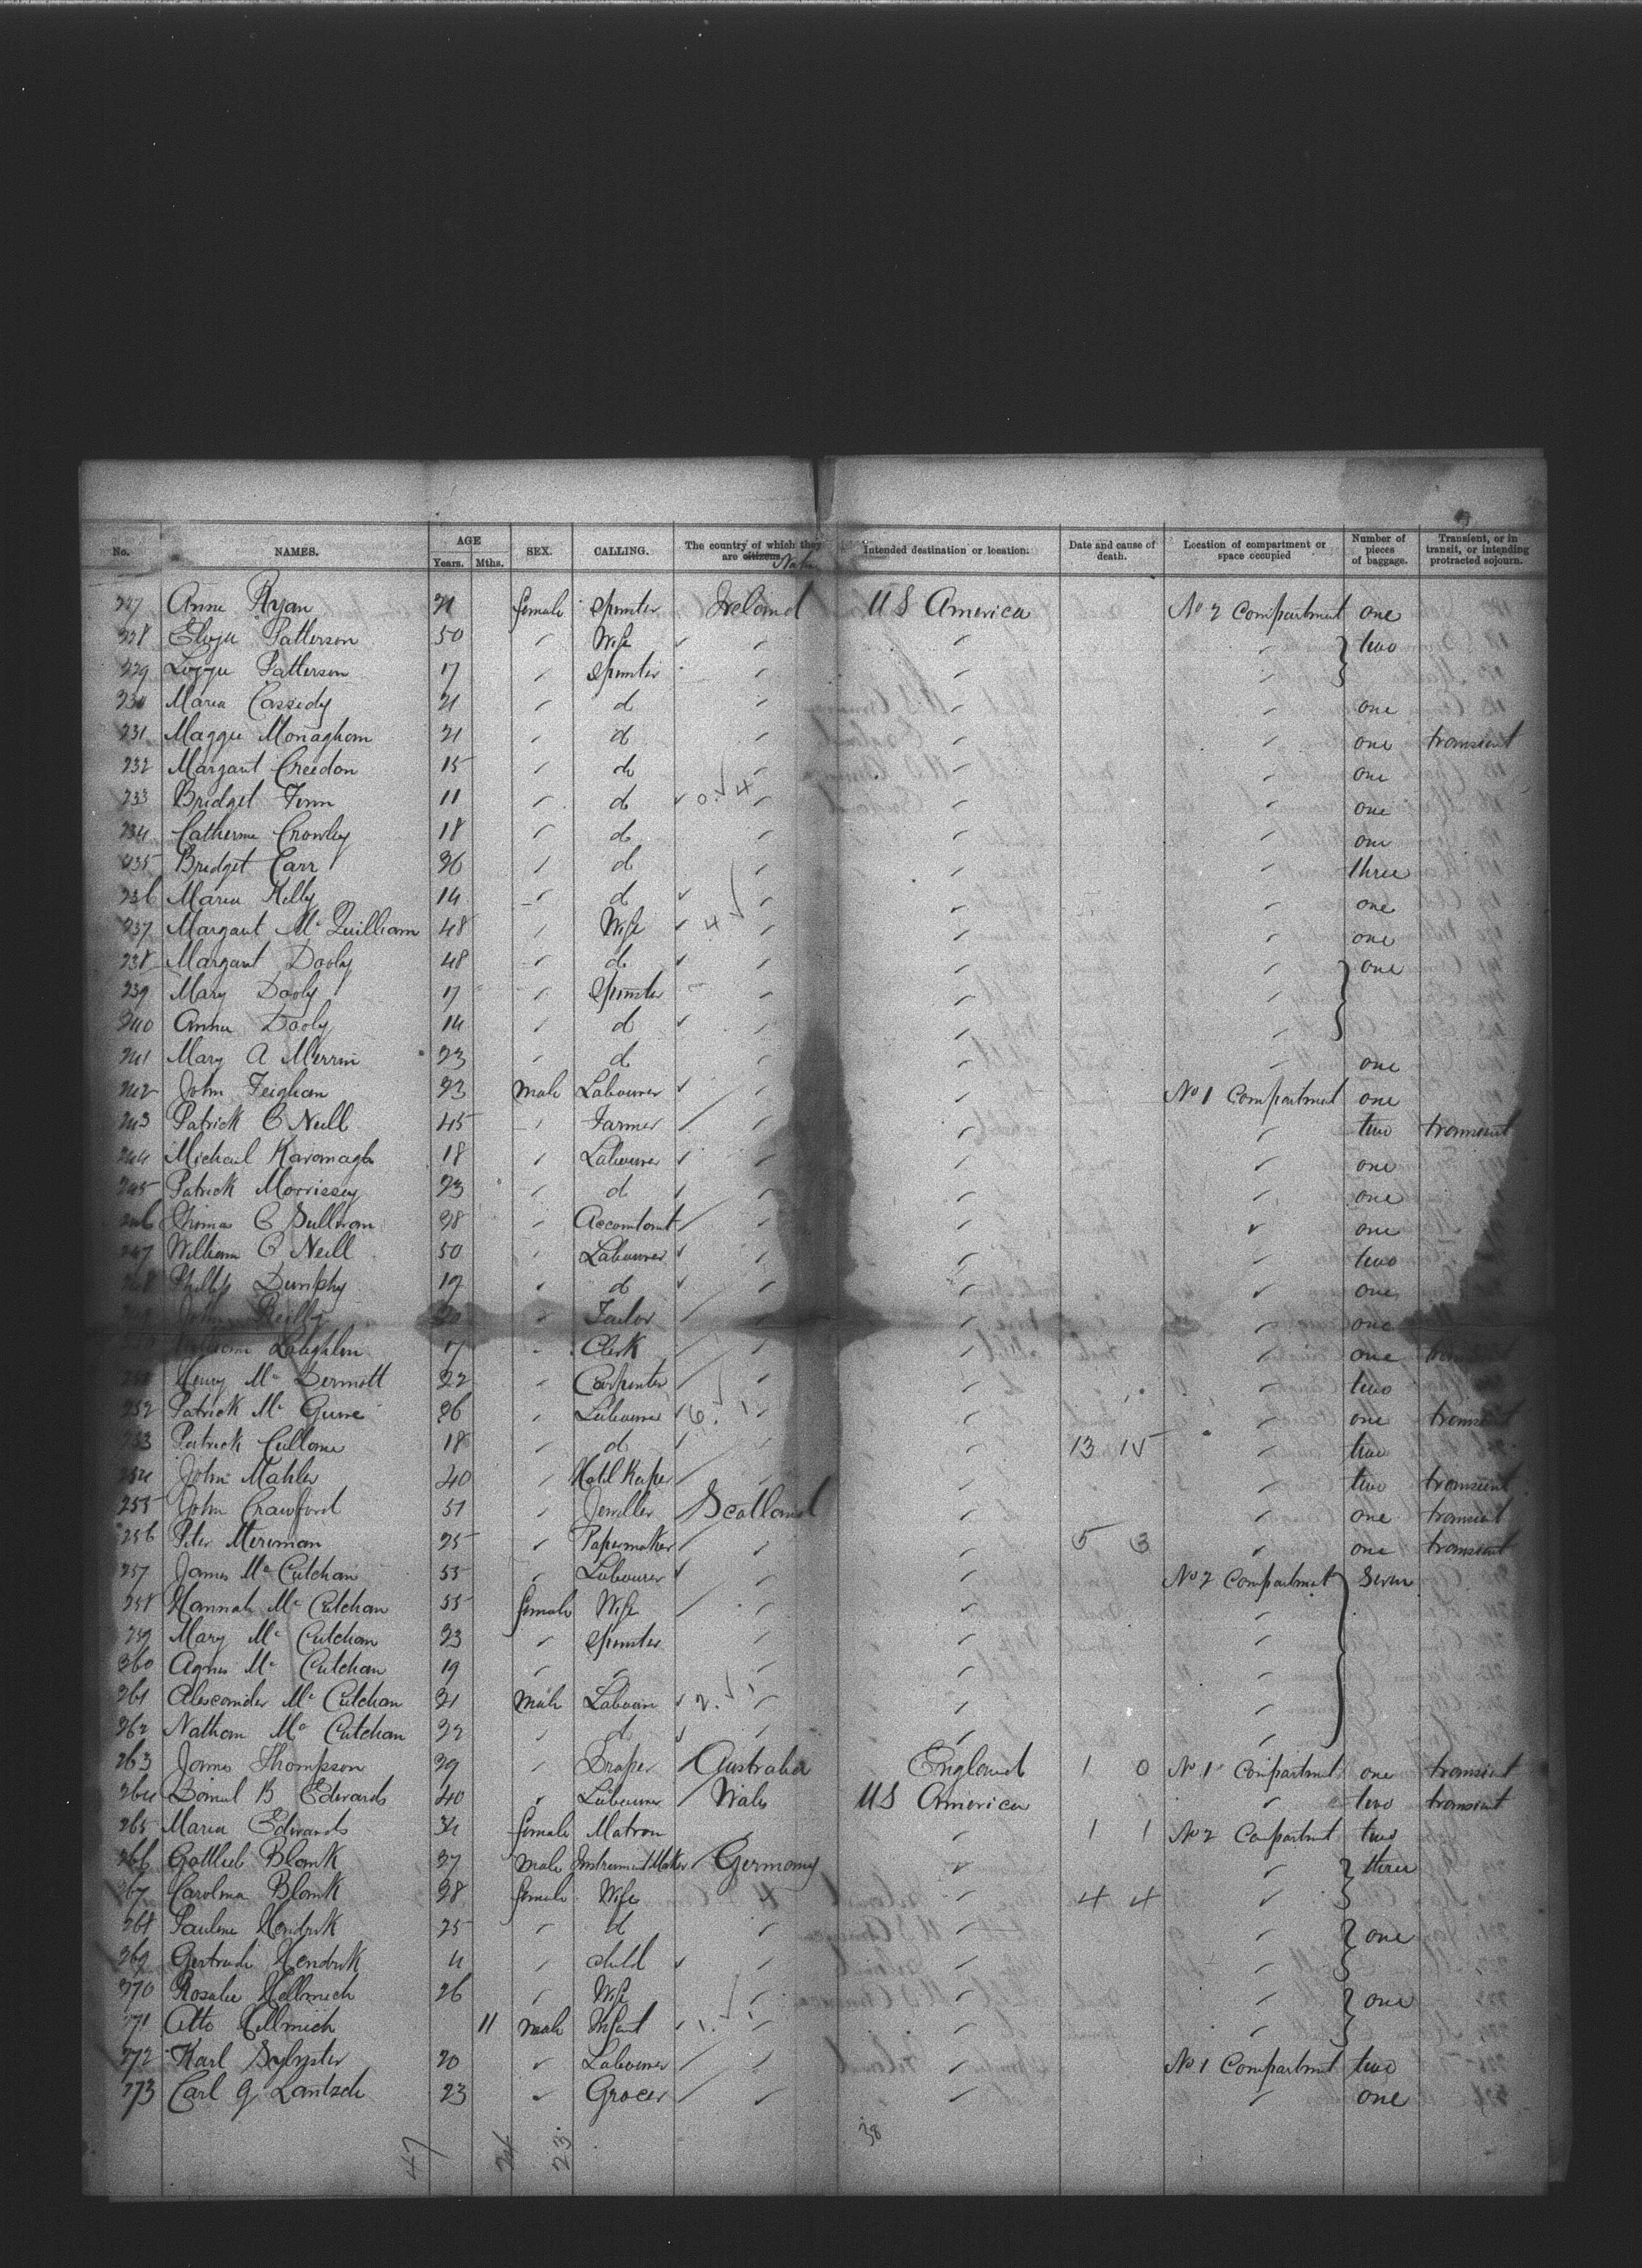 No. NAMES. AGE Years. Mths. SEX. CALLING. The country of which they are citizens. Intended destination or location. Date and cause of death. Location of compartment or space occupied Number of pieces of baggage. Transient, or in transit, or intending protracted sojourn.
227 Anne Ryan 21 female Spinster Ireland U S America No 2 Compartment one
228 Patterson 50 " Wife " " " two
229 Patterson 17 " Spinster " " "
230 Maria Cassidy 21 " d " " " one
231 Maggie Monaghan 21 " d " " " one transient
232 Margaret Creedon 15 " d " " " one
233 Bridget Finn 11 " d " " " one
234 Catherine Crowley 18 " d " " " one
235 Bridget Carr 26 " d " " " three
236 Maria Kelly 14 " d " " " one
237 Margaret Mc Quilliam 48 " Wife " " " one
238 Margaret Dooly 48 " d " " " one
239 Mary Dooly 17 " Spinster " " "
240 Anna Dooly 14 " d " " "
241 Mary A Merrin 23 " d " " " one
242 John Feighan 23 male Labourer " " No 1 Compartment one
243 Patrick O Neill 45 " Farmer " " " two transient
244 Michael Kavanagh 18 " Labourer " " " one
245 Patrick Morrissey 23 " d " " " one
246 Thomas O Sullivan 38 " Accountant " " " one
247 William O Neill 50 " Labourer " " " two
248 Phillip Dunphy 19 " d " " " one
249 John Reilly 20 " Tailor " " " one
250 William Laughlin 17 " Clerk " " " one transient
251 Henry Mc Dermott 22 " Carpenter " " " two
252 Patrick Mc 26 " Labourer " " " one transient
253 Patrick Cullone 18 " d " " 13 15 " two
254 John Mahler 40 " Hotel Keeper " " " two transient
255 John Crawford 51 " Jeweller Scotland " " one transient
256 Peter Merriman 25 " Papermaker " " 5 3 " one transient
257 James Mc Cutchan 55 " Labourer " " No 2 Compartment seven
258 Hannah Mc Cutchan 55 female Wife " " "
259 Mary Mc Cutchan 23 " Spinster " " "
260 Agnes Mc Cutchan 19 " " " " "
261 Alexander Mc Cutchan 21 male Labourer " " "
262 Nathan Mc Cutchan 22 " d " " "
263 James Thompson 29 " Draper Australia England 1 0 No 1 Compartment one transient
264 Daniel B Edwards 40 " Labourer Wales U S America " two transient
265 Maria Edwards 34 female Matron " " 1 1 No 2 Compartment two
266 Gottlieb Blank 27 male Instrument Maker Germany " " three
267 Carolina Blank 28 female Wife " " 4 4 "
268 Pauline Hendrik 25 " d " " " one
269 Gertrude Hendrik 4 " child " " "
270 Rosalie Hellmich 26 " Wife " " " one
271 Otto Hellmich 11 male Infant " " "
272 Karl Sylvester 20 " Labourer " " No 1 Compartment two
273 Carl G Lantzsch 23 " Grocer " " " one
47 24 23 38